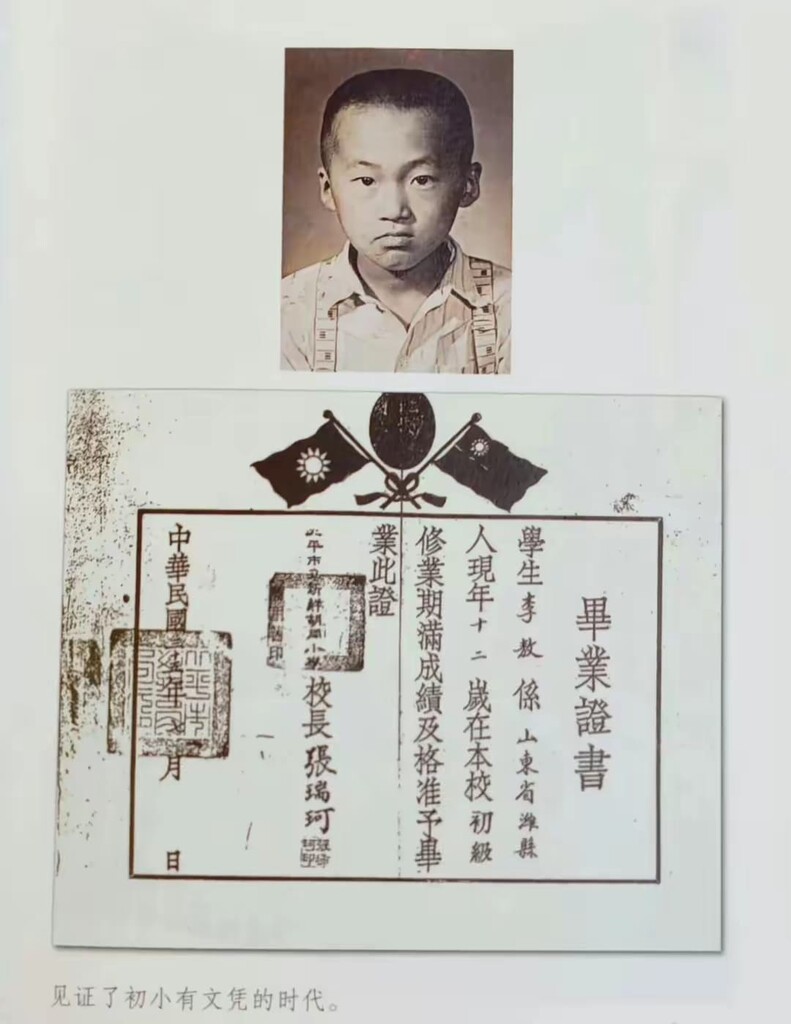 畢業證書
學生李敖係山東省濰縣
人現年十二歲在本校初級
修業期滿成績及格准予畢
業此證
平市 新鮮胡同小學校長張瑞珂
中華民國 五年七月 日
见证了初小有文凭的时代。